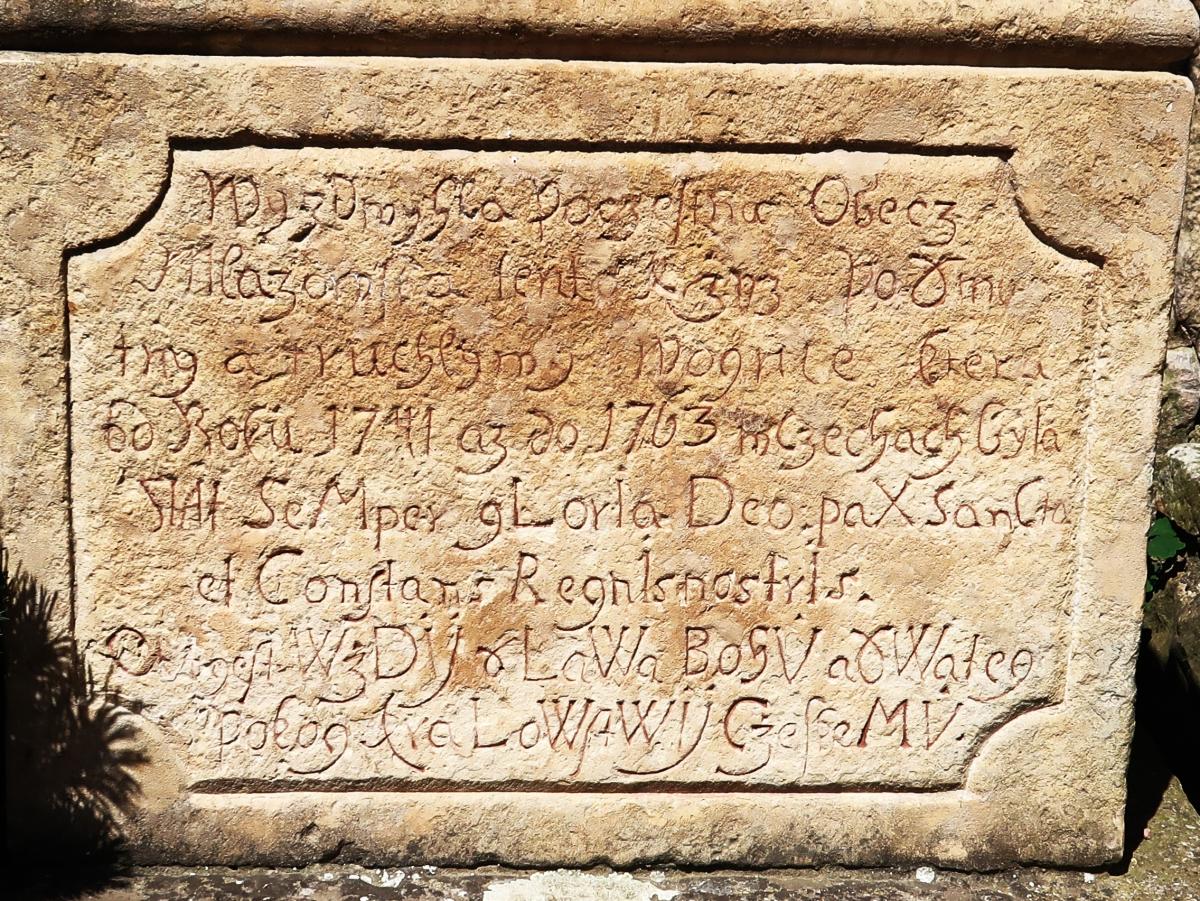 Wyzdwyhla Poczestna Obecz
Mlazowska tento Krzyz Po Smu
tny a truchlymy Wognie ktera
od Roku 1741 az do 1763 w Czechach byla
StAt SeMper gLorIa Deo. paX SanCta
et Constans RegnIs nostrIs.
gest WzDIJ sLaWa BohV a sWateo
pokogj kraLoWstWIJ CzeskeMV.